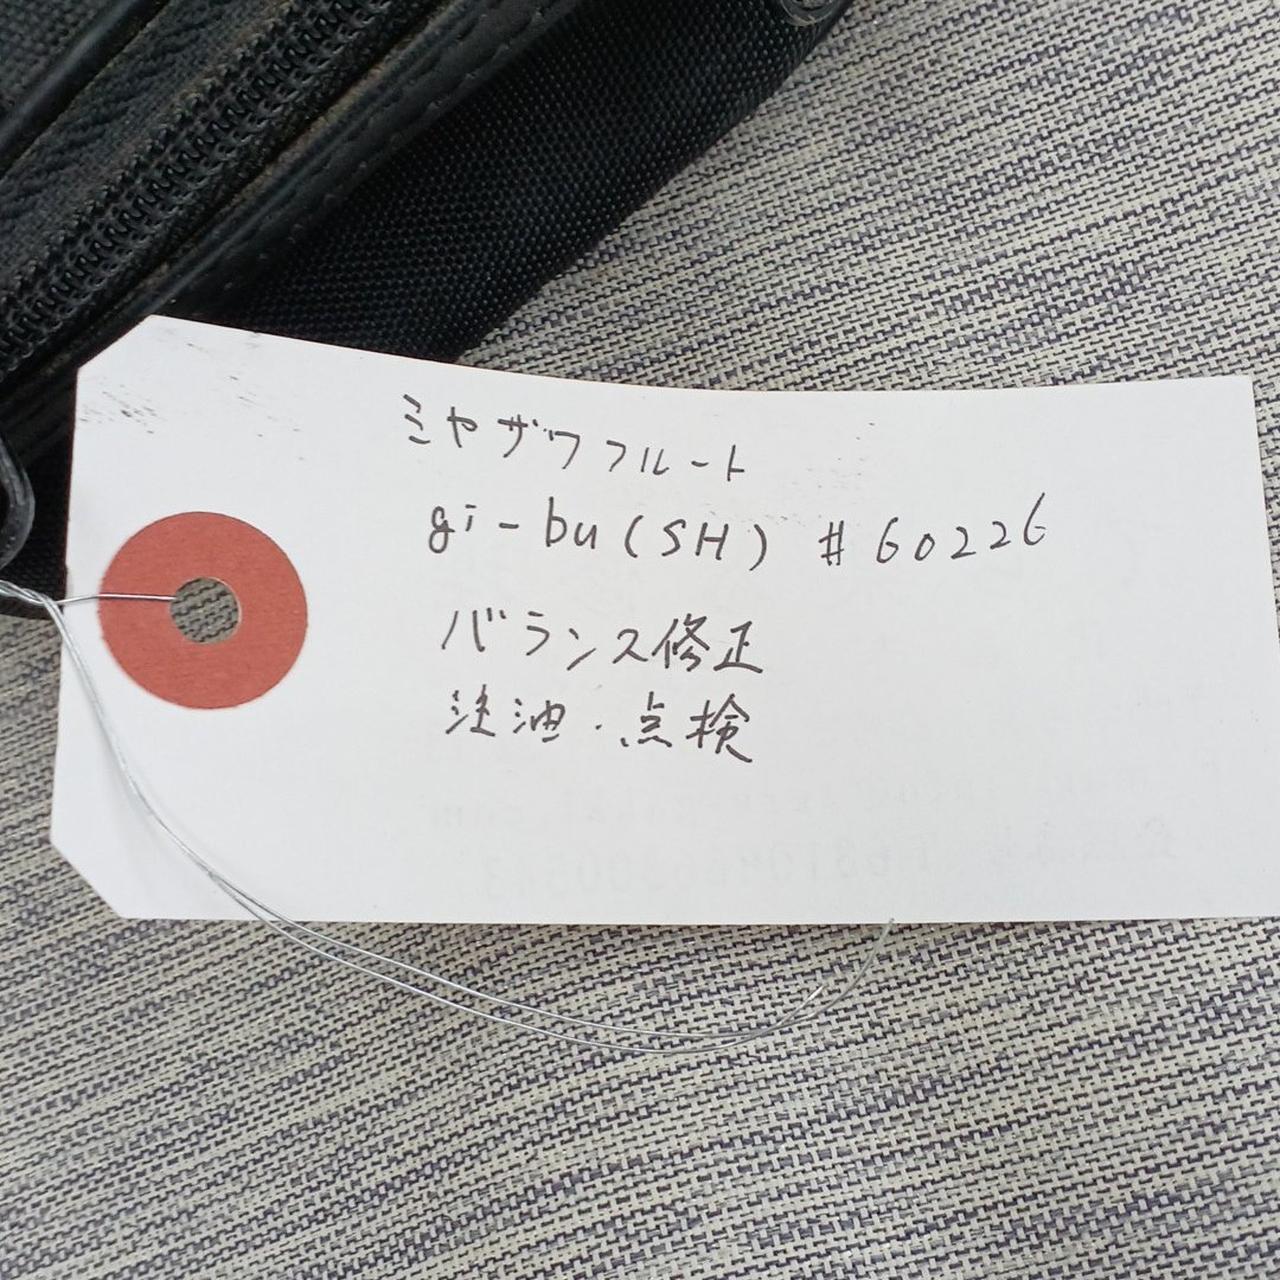 ミヤザワフルート
gi-bu(SH) #60226
バランス修正
注油・点検